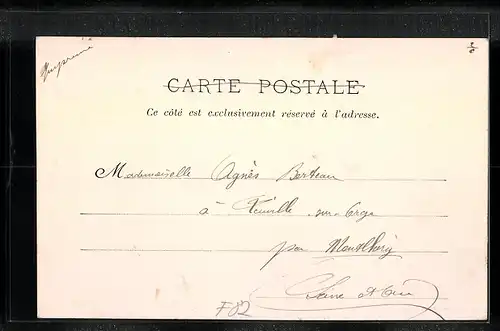 Imprimé
CARTE POSTALE
Ce côté est exclusivement réservé à l'adresse.
Mademoiselle Agnès Berteau
à sur-Orge
par Montlhéry
Seine et Oise
F82